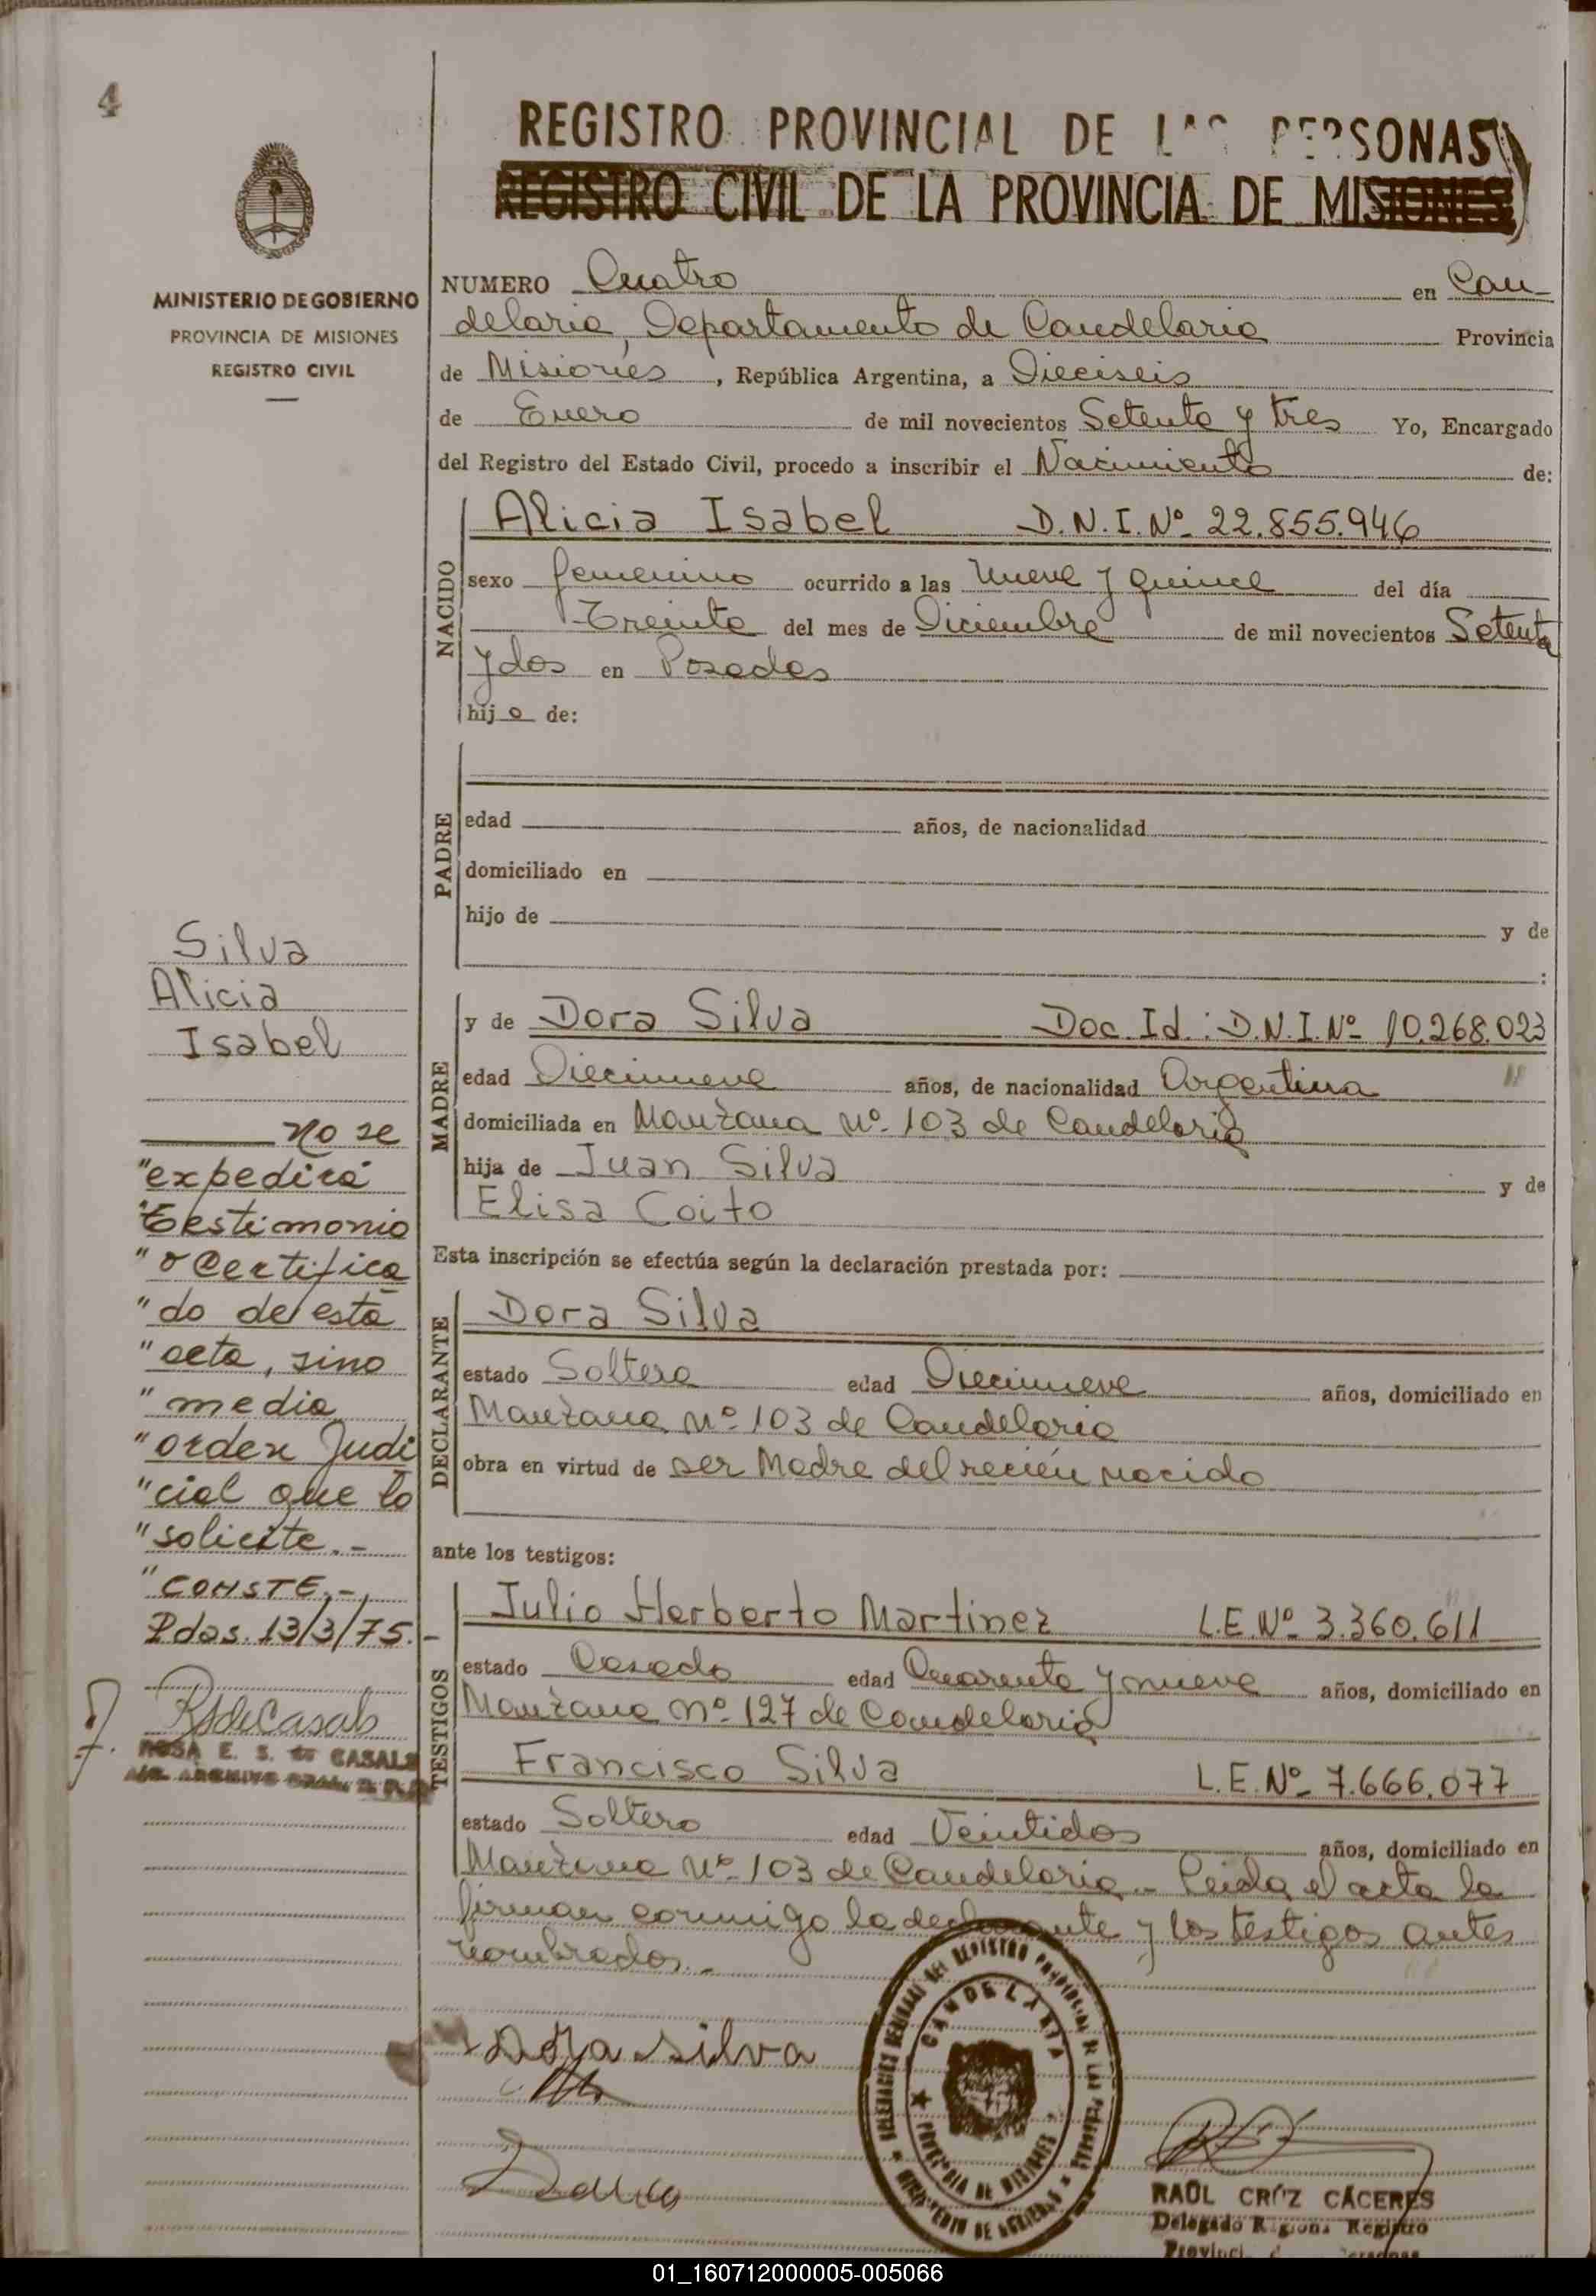 4
REGISTRO PROVINCIAL DE PERSONAS
REGISTRO CIVIL DE LA PROVINCIA DE MISIONES
MINISTERIO DE GOBIERNO
PROVINCIA DE MISIONES
REGISTRO CIVIL
NUMERO Cuatro en Can-
delaria, Departamento de Candelaria Provincia
de Misiones, República Argentina, a Dieciseis
de Enero de mil novecientos Setenta y tres Yo, Encargado
del Registro del Estado Civil, procedo a inscribir el Nacimiento de:
NACIDO
Alicia Isabel D.N.I.Nº 22.855.946
sexo femenino ocurrido a las Nueve y quince del día
Treinta del mes de Diciembre de mil novecientos Setenta
y dos en Posadas
hijo de:
PADRE
edad años, de nacionalidad
domiciliado en
hijo de y de
:
Silva
Alicia
Isabel
MADRE
y de Dora Silva Doc. Id.: D.N.I.Nº 10.268.023
edad Diecinueve años, de nacionalidad Argentina
domiciliada en Manzana Nº 103 de Candelaria
hija de Juan Silva y de
Elisa Coito
No se
"expedirá
"testimonio
"o Certifica
"do de esta
"acta, sino
"media
"orden Judi
"cial que lo
"solicite.-
"CONSTE.-
Pdas. 13/3/75.-
RSdeCasals
ROSA E. S. de CASALS
Esta inscripción se efectúa según la declaración prestada por:
DECLARANTE
Dora Silva
estado Soltera edad Diecinueve años, domiciliado en
Manzana Nº 103 de Candelaria
obra en virtud de ser Madre del recién nacido
ante los testigos:
TESTIGOS
Julio Herberto Martinez L.E.Nº 3.360.611
estado Casado edad Cuarenta y nueve años, domiciliado en
Manzana Nº 127 de Candelaria
Francisco Silva L.E.Nº 7.666.077
estado Soltero edad Veintidos años, domiciliado en
Manzana Nº 103 de Candelaria.- Leida el acta la
firman conmigo la declarante y los testigos antes
nombrados.-
Dora Silva
CANDELARIA
PROVINCIA DE MISIONES
MINISTERIO DE GOBIERNO
RAÚL CRUZ CÁCERES
Delegado Registro
01_160712000005-005066